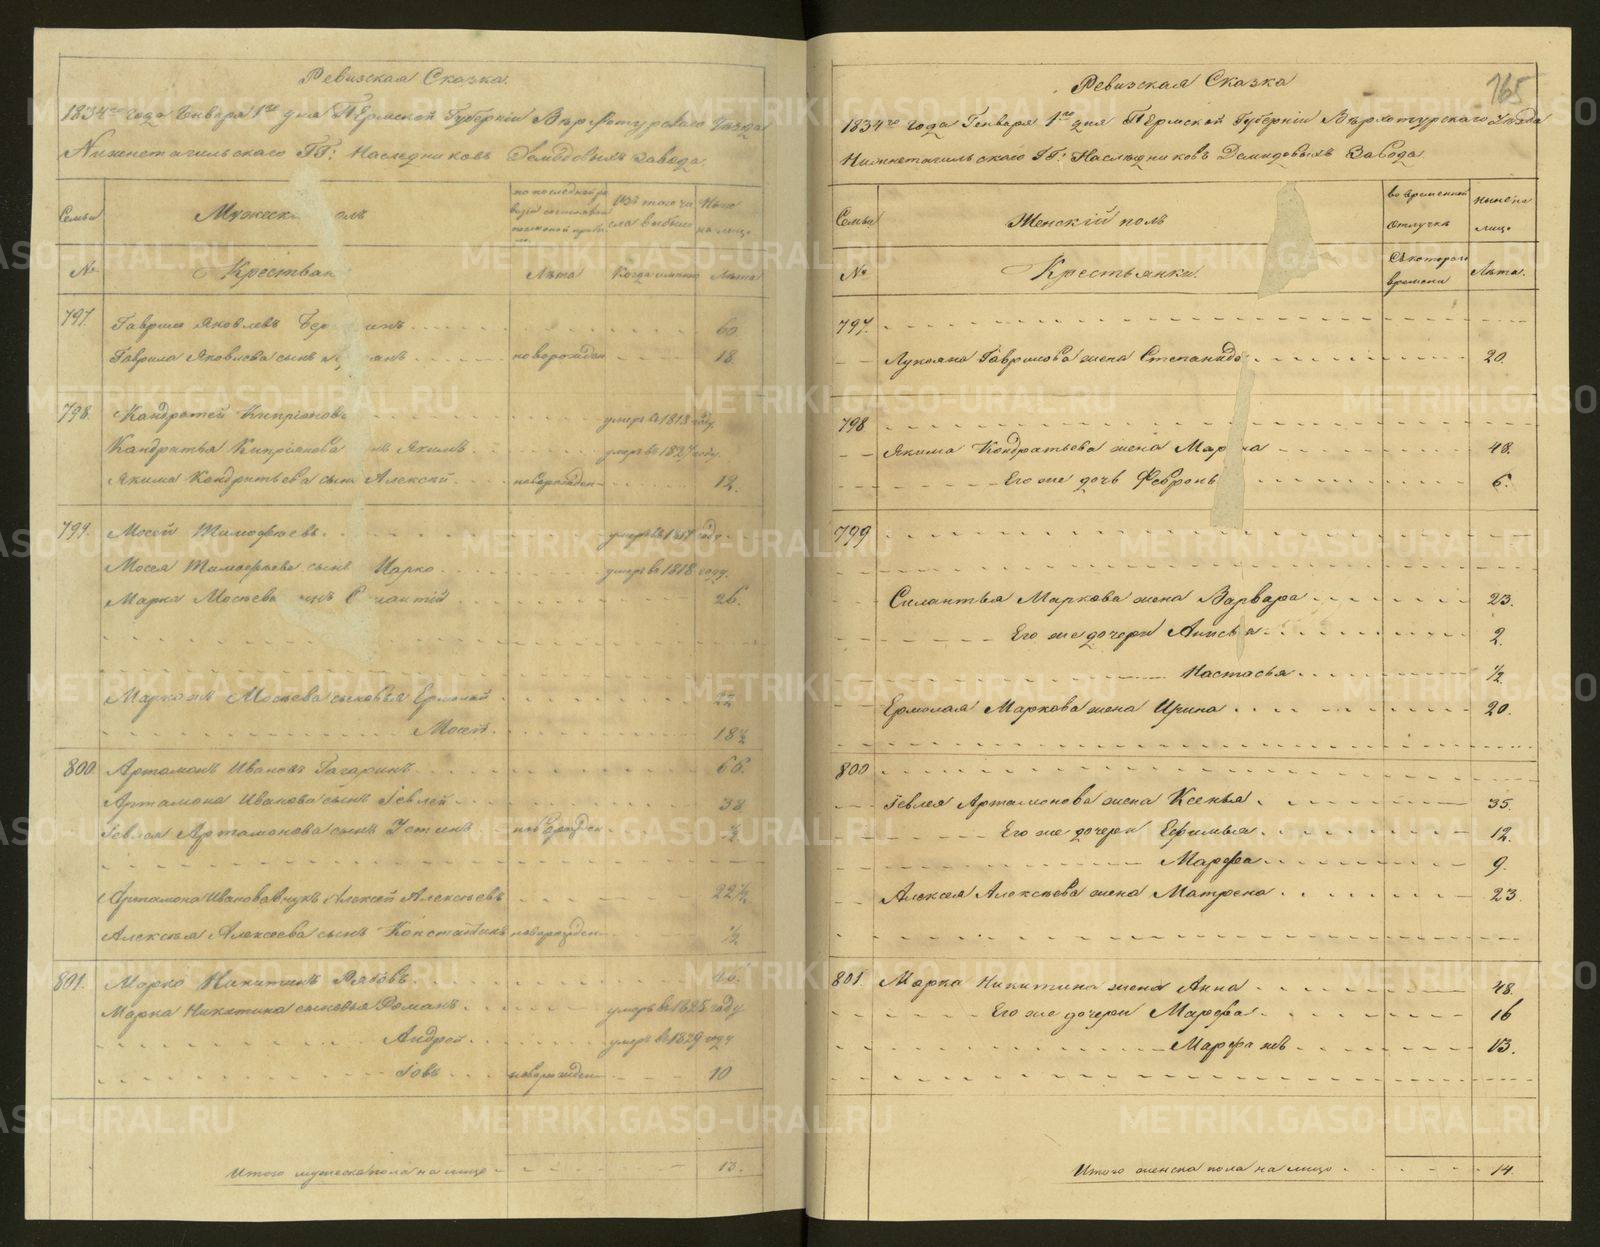 Ревизская Сказка
1834го года Генваря 1го дня Пермской Губерніи Верхотурскаго Уезда
Нижнетагильскаго ГГ: Наследниковъ Демидовыхъ завода
Семьи
Мужеск олъ
по последней ре
визіи состояло
Изъ того чи
сла выбыло
Ныне
на лицо
№
Крестьян
Лѣта
Когда именно
Лѣта
797. Гаврило Яковлевъ 60
Гаврила Яковлева сынъ новорожден 18.
798. Кандратей Кипріановъ умеръ въ 1813 году
Кандратья Кипріянова Якимъ умеръ въ 1827 году.
Якима Кондратьева сынъ Алексей новорожден 12.
799. Мосей Тимофеевъ умеръ въ 18 году
Мосея Тимофеева сынъ Марко умеръ въ 1818 году.
Марка Мосѣева 26.
Марка Мосѣева сыновья Ермолай 22
Мосей. 18½
800 Артамонъ Ивановъ Гагаринъ 66.
Артамона Иванова сынъ Іевлей 38
Іевлея Артамонова сынъ Устинъ новорожден ½
Артамона Иванова внукъ Алексей Алексѣевъ 22½
Алексѣя Алексеева сынъ Константинъ новорожден ½
801. Марко Никитинъ Рябовъ 40.
Марка Никитина сыновья Романъ умеръ въ 1825 году
Андрей умеръ въ 1829 году
Іовъ новорожден 10
Итого мужеска пола на лицо 13.
765
Ревизская Сказка
1834го года Генваря 1го дня Пермской Губерніи Верхотурскаго Уезда
Нижнетагильскаго ГГ: Наследниковъ Демидовыхъ Завода
Семьи
Женскій полъ
во временной
отлучке
ныне на
лицо
№
Крестьянки
Съ котораго
времени
Лѣта.
797.
Лукояна Гаврилова жена Степанида 20.
798
Якима Кондратьева жена Мар на 48.
Его же дочь Февронь 6.
799
Силантья Маркова жена Варвара 23.
Его же дочери Анисья 2
Настасья ½
Ермолая Маркова жена Ирина 20.
800
Іевлея Артамонова жена Ксенья 35
Его же дочери Ефимья 12.
Марфа 9.
Алексея Алексѣева жена Матрена 23
801 Марка Никитина жена Анна 48.
Его же дочери Марфа 16
Марфа жъ 13.
Итого женска пола на лицо 14.
METRIKI.GASO-URAL.RU